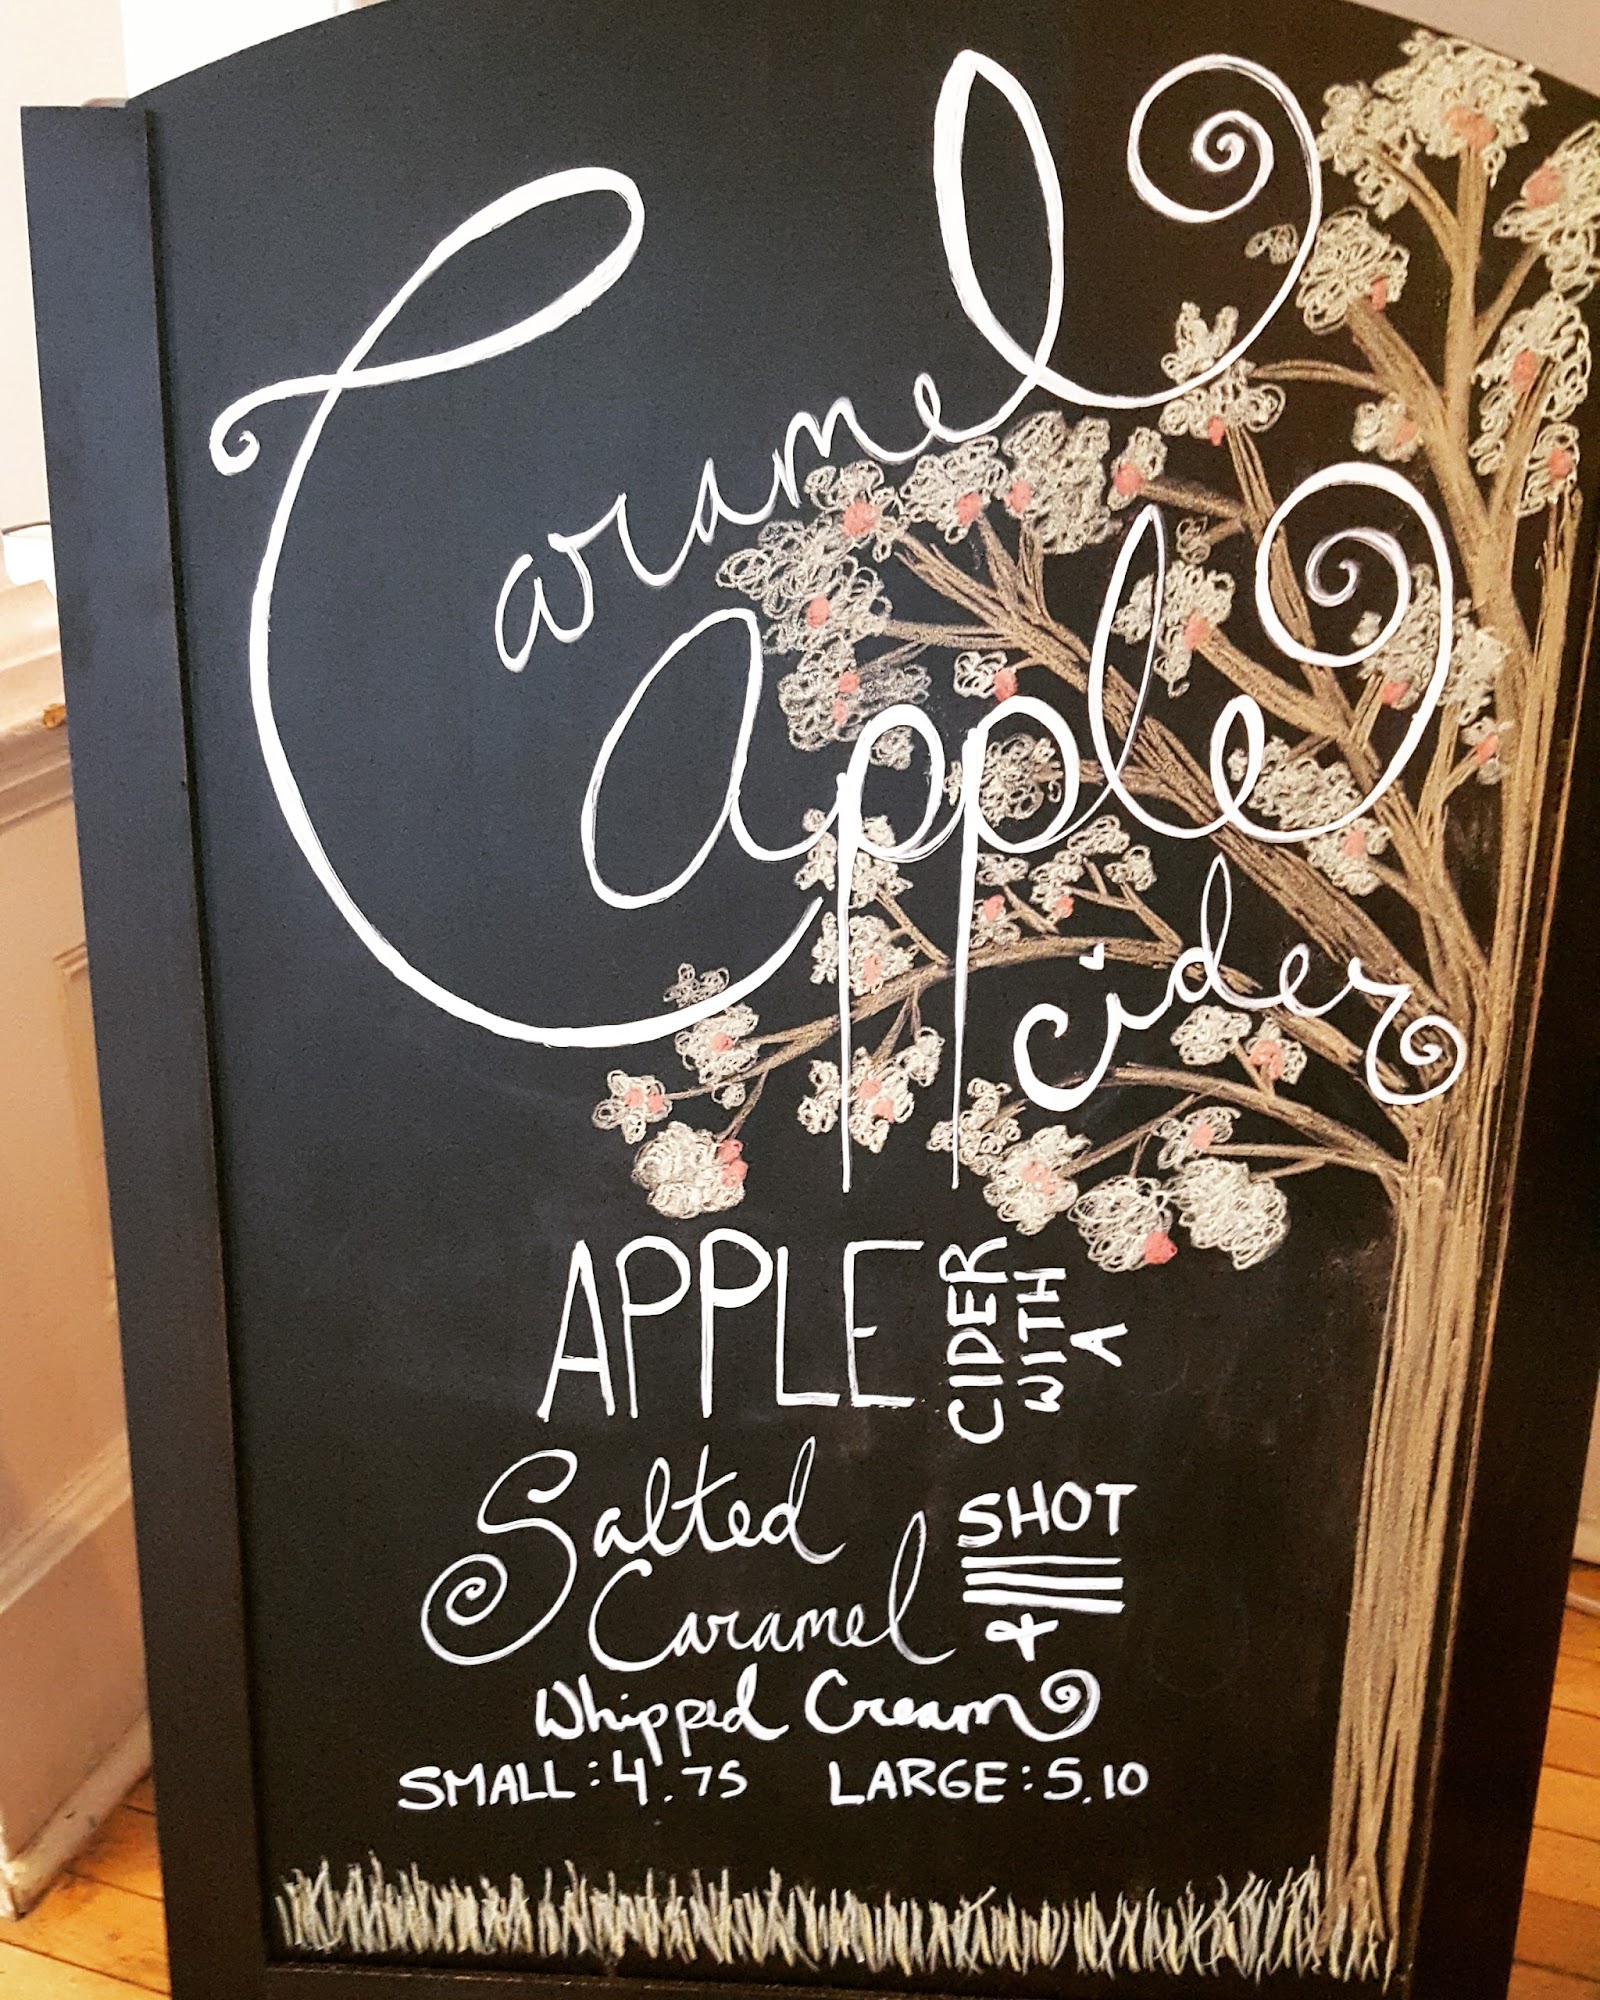 Caramel
Apple
cider
APPLE CIDER WITH A
Salted SHOT
Caramel &
Whipped Cream
SMALL: 4.75 LARGE: 5.10